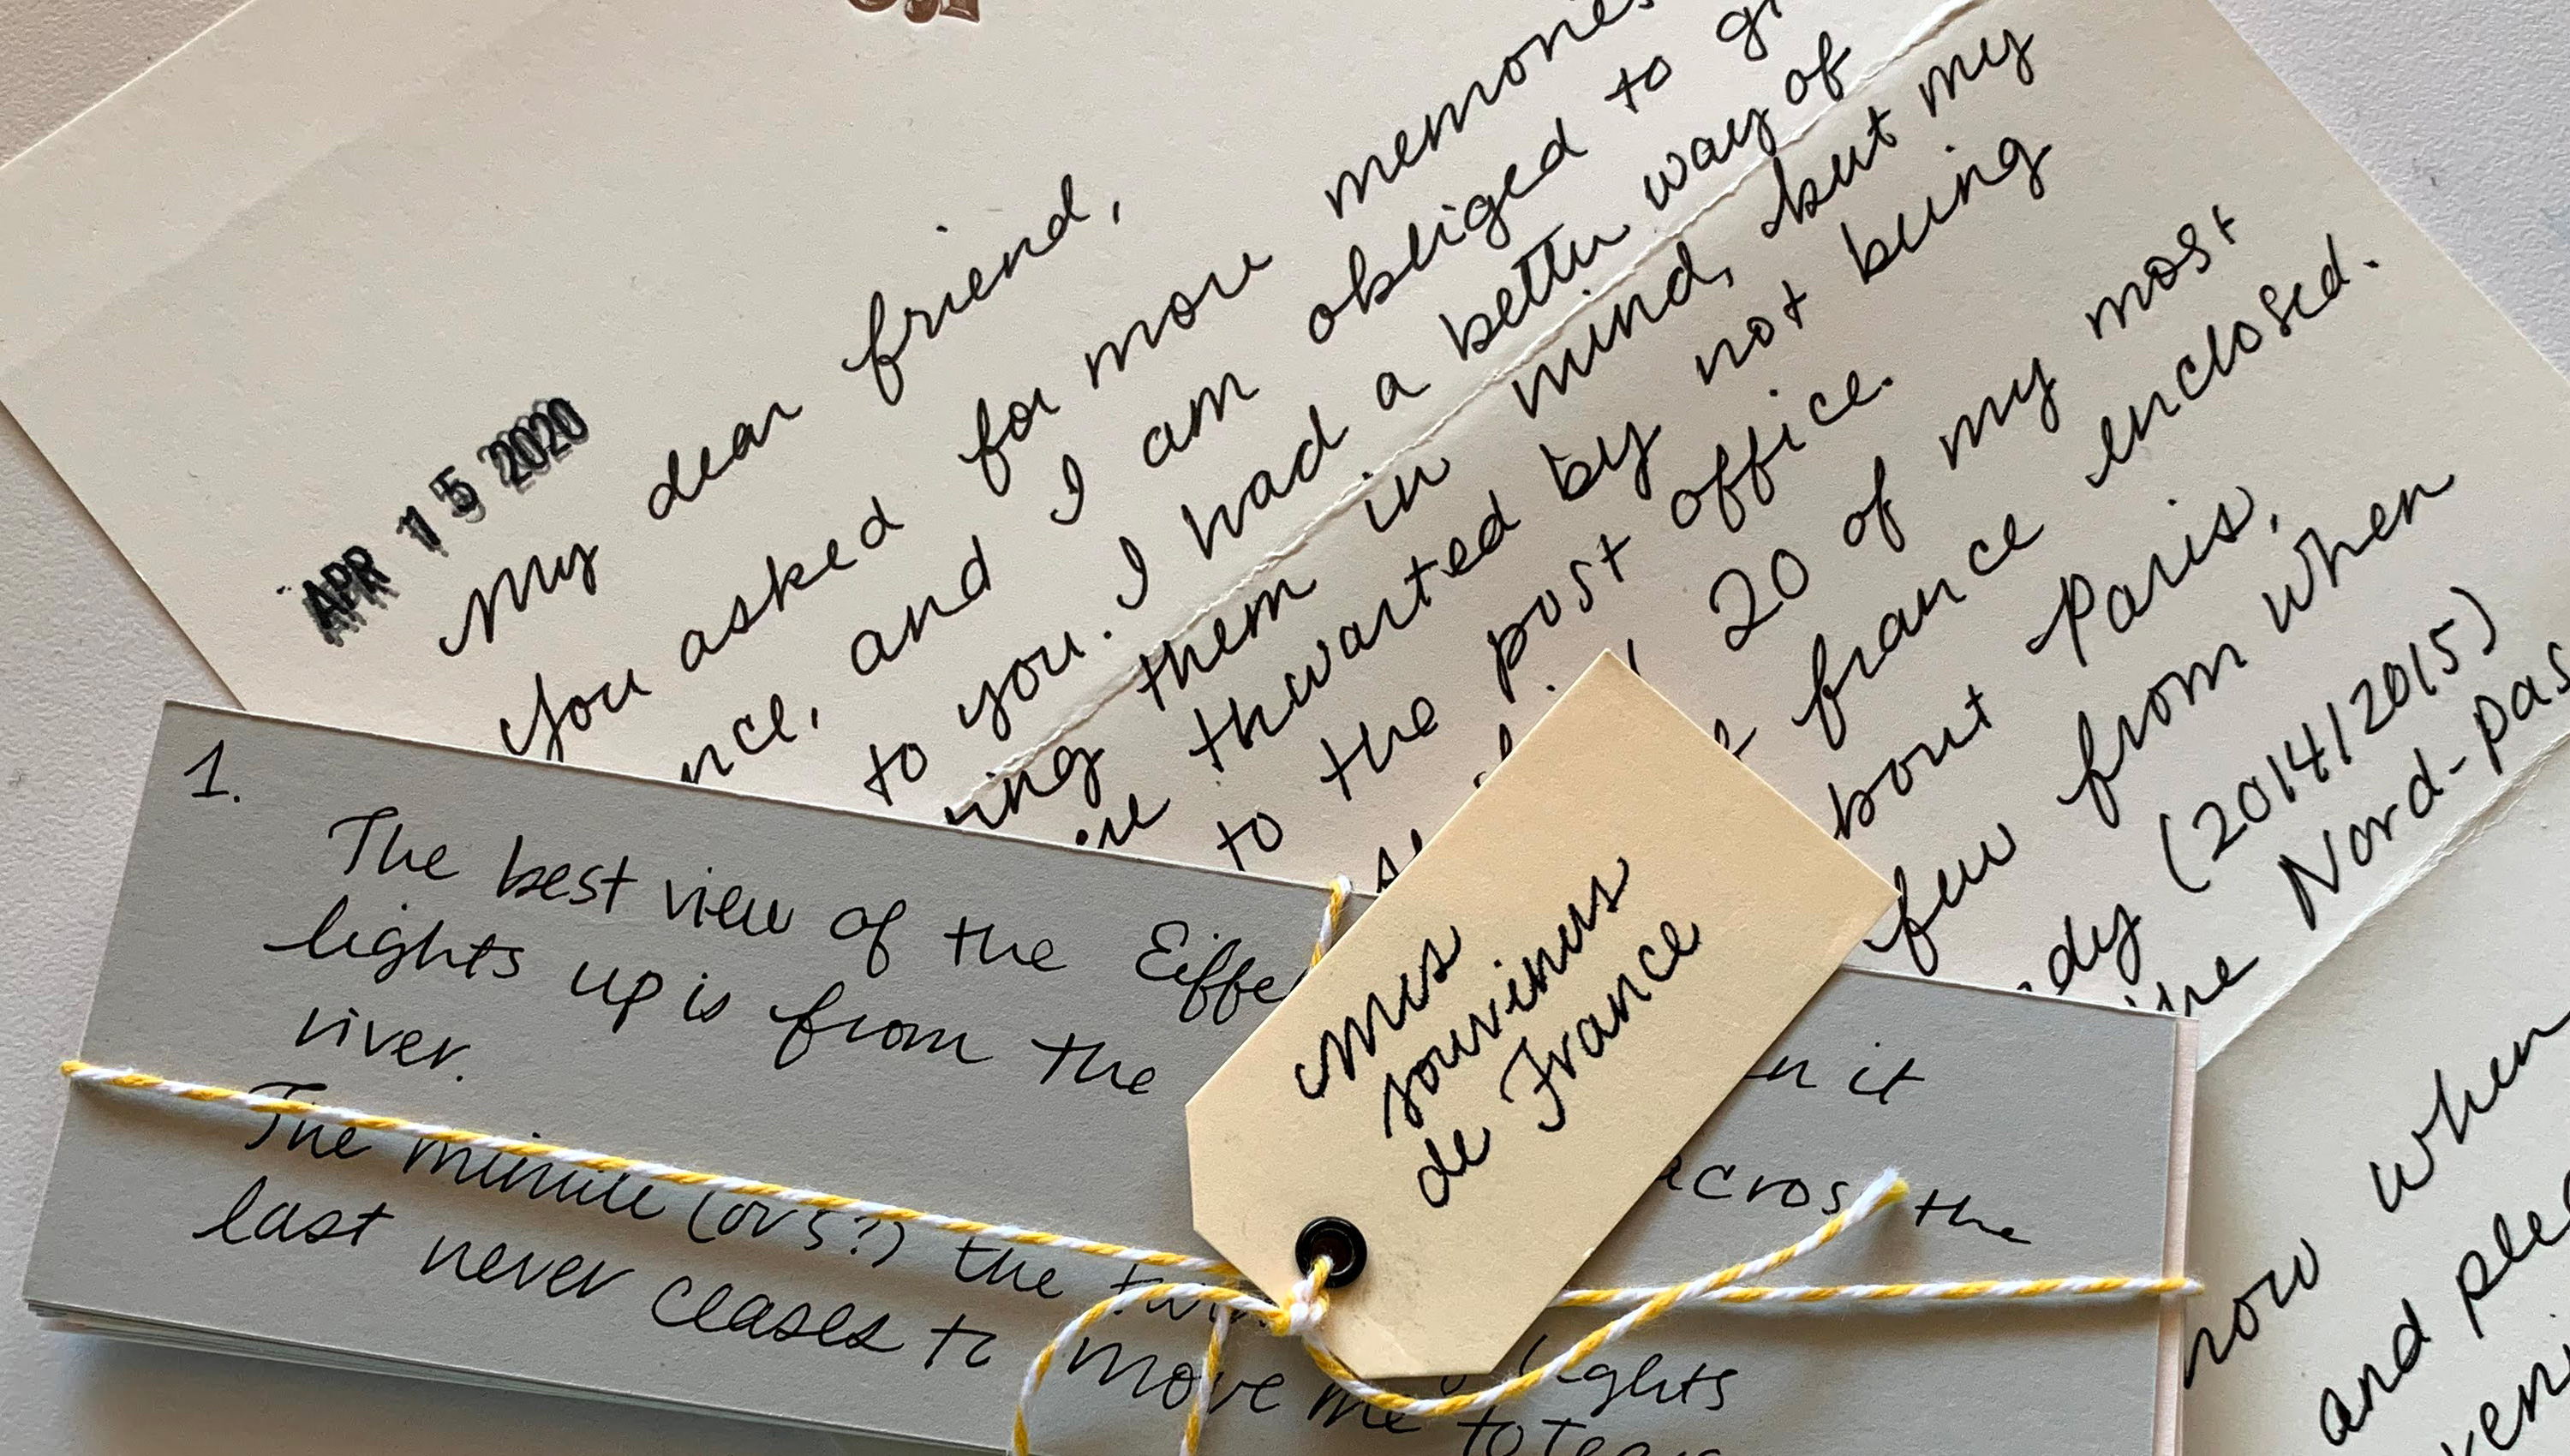 APR 15 2020
My dear friend,
You asked for more memories
nce, and I am obliged to
to you. I had a better way of
them in mind, but my
thwarted by not being
to the post office.
20 of my most
france enclosed.
bout Paris,
few from when
(2014/2015)
the Nord-pas
1.
The best view of the Eiffe n it
lights up is from the acros the
river.
The minute (or 5?) the lights
last never ceases to move me to tears
mes
souvenirs
de France
when
now
and